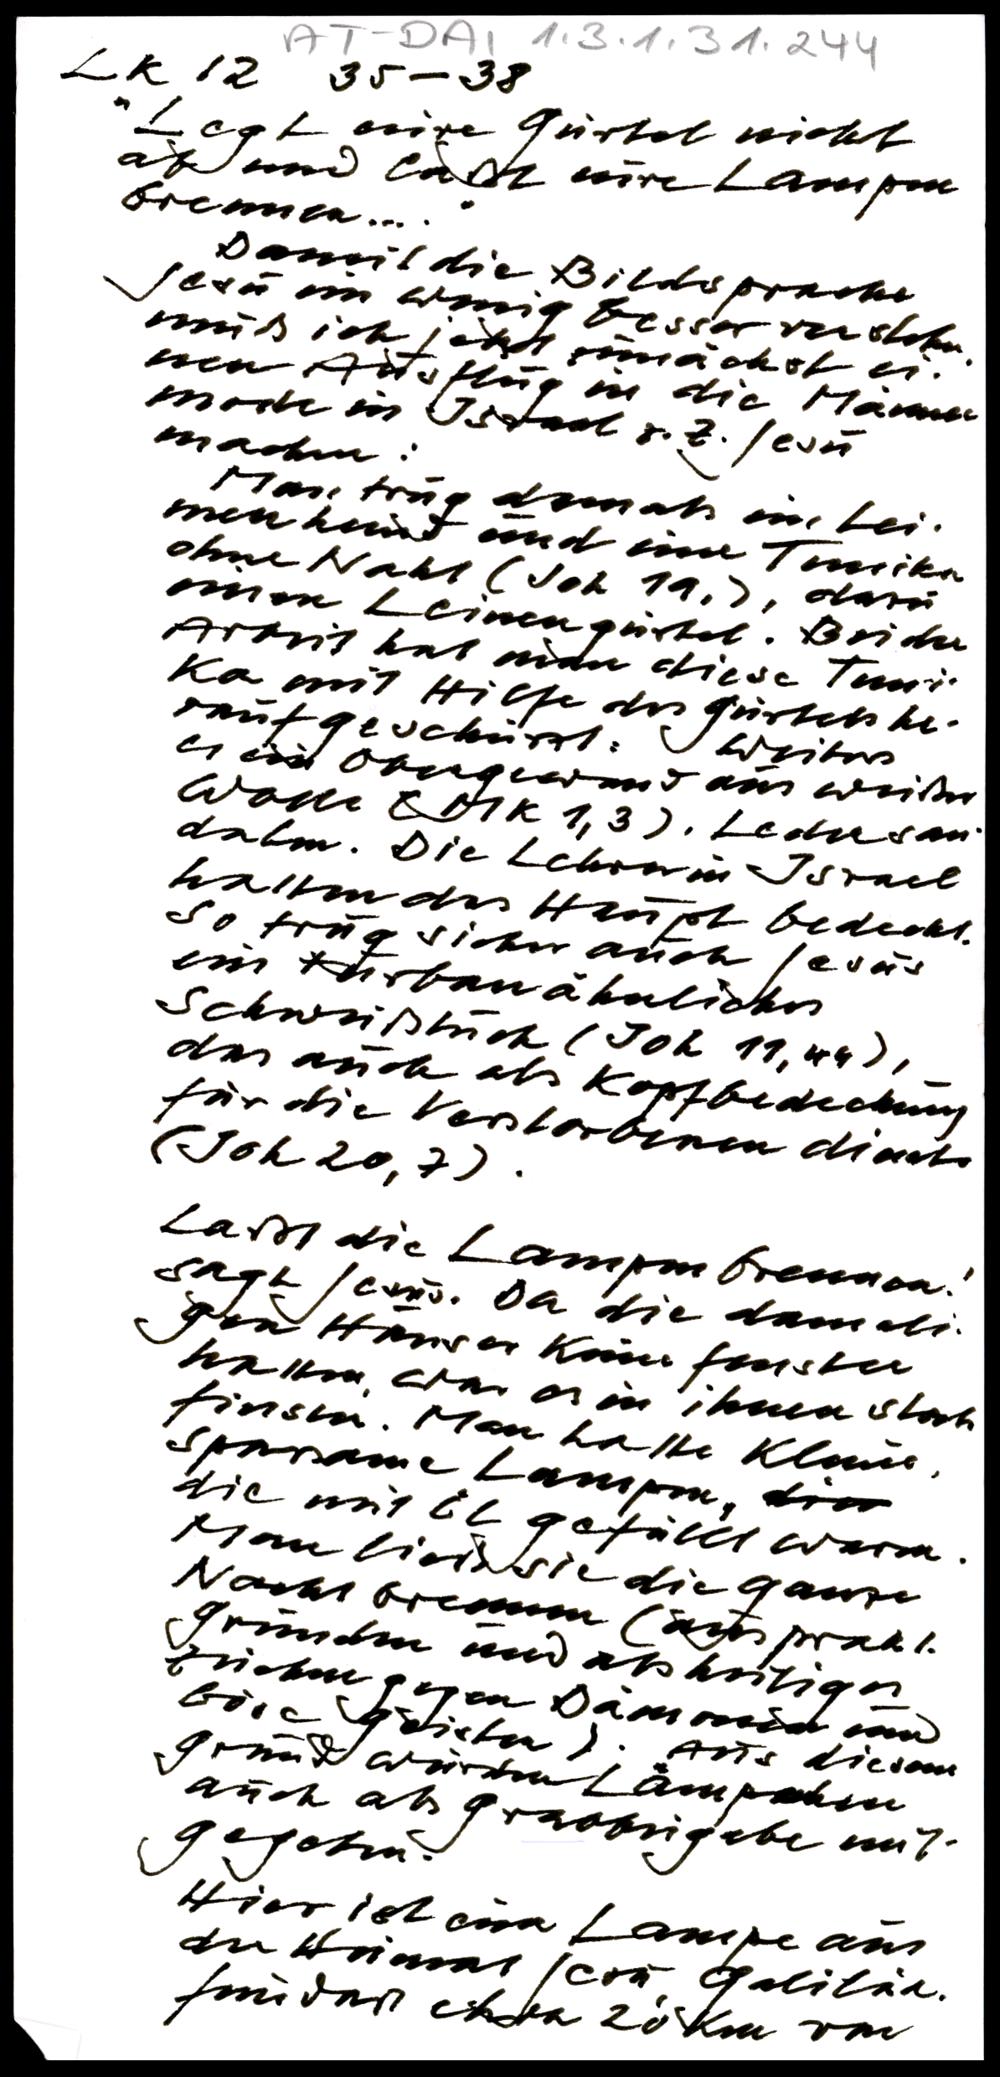 AT-DAI 1.3.1.31.244
LK 12 35-38
"Legt eure Gürtel nicht
ab und laßt eure Lampen
brennen...."
Damit die Bildsprache
Jesu ein wenig besser verstehn,
muß ich jetzt zunächst ei-
nen Ausflug in die Männer
mode in Israel z. Z. Jesu
machen:
Man trug damals ein Lei-
nenhemd und eine Tunika
ohne Naht (Joh 19,), dazu
einen Leinengürtel. Bei der
Arbeit hat man diese Tuni-
ka mit Hilfe des Gürtels he-
raufgeschürzt. Weiters
ein Obergewand aus weißer
Wolle (Mk 1,3). Ledersan-
dalen. Die Lehrer in Israel
hatten das Haupt bedeckt.
So trug sicher auch Jesus
ein turbanähnliches
Schweißtuch (Joh 11,44),
das auch als Kopfbedeckung
für die Verstorbenen diente
(Joh 20,7).
Laßt die Lampen brennen!
sagt Jesus. Da die damali-
gen Häuser keine Fenster
hatten, war es in ihnen stock
finster. Man hatte kleine,
sparsame Lampen,
die mit Öl gefüllt waren.
Man ließ sie die ganze
Nacht brennen (aus prakt.
Gründen und als heiliges
Zeichen gegen Dämonen und
böse Geister). Aus diesem
Grund wurden Lämpchen
auch als Grabbeigabe mit-
gegeben.
Hier ist eine Lampe aus
der Heimat Jesu, Galiläa.
Fundort etwa 20 km von